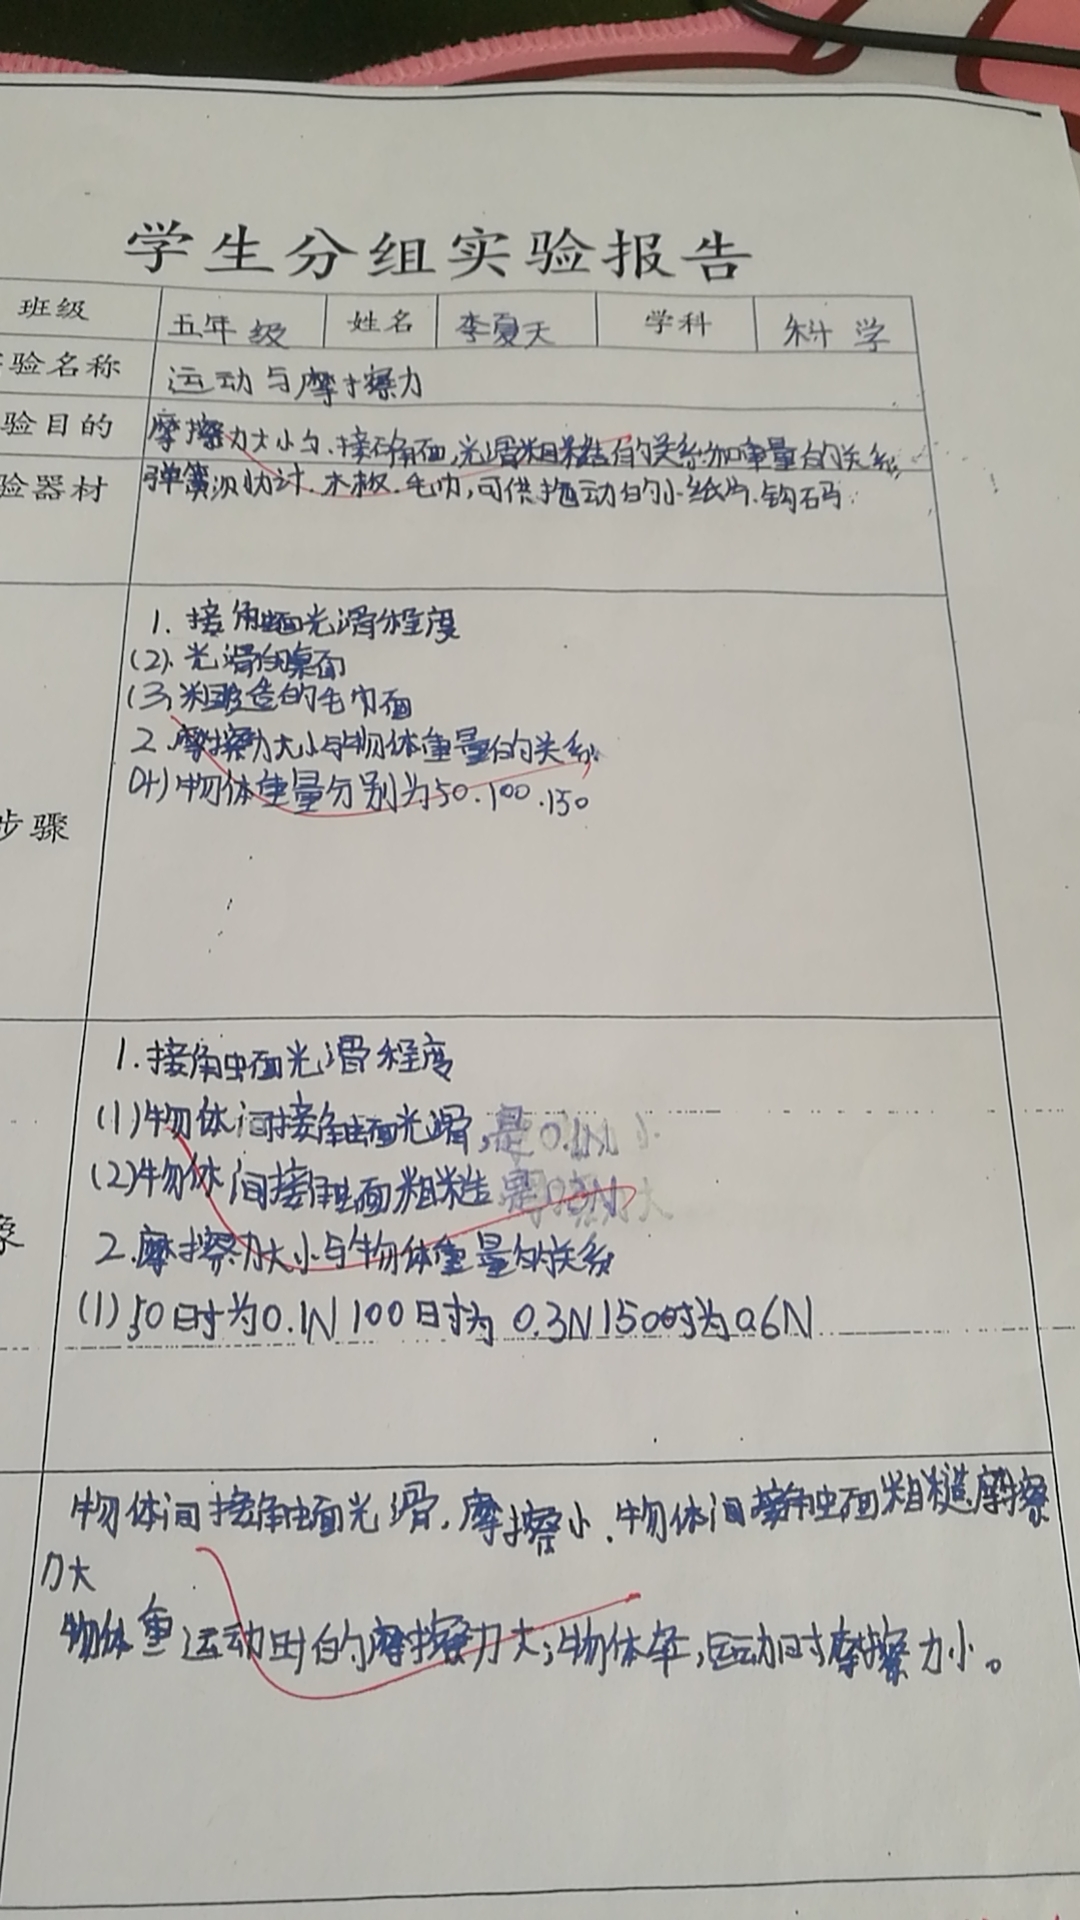 学生分组实验报告
班级 五年级 姓名 李夏天 学科 科学
验名称 运动与摩擦力
验目的 摩擦力大小与、接确面,光滑粗糙造有的关系和重量的关系
验器材 弹簧测力计.木板.毛巾,可供拖动的小纸片.钩码
1. 接触面光滑程度
(2). 光滑的桌面
(3. 粗造的毛巾面
2.摩擦力大小与物体重量的关系
(4)物体重量分别为50.100.150
步骤
1.接触面光滑程度
(1)物体间接触面光滑,是0.1N 小
(2)物体间接触面粗糙 是0.3N 大
象
2.摩擦力大小与物体重量的关系
(1)50时为0.1N 100时为 0.3N 150时为0.6N
物体间接触面光滑.摩擦小.物体间接触面粗糙摩擦
力大
物体重运动时的摩擦力大;物体轻,运动时摩擦力小。